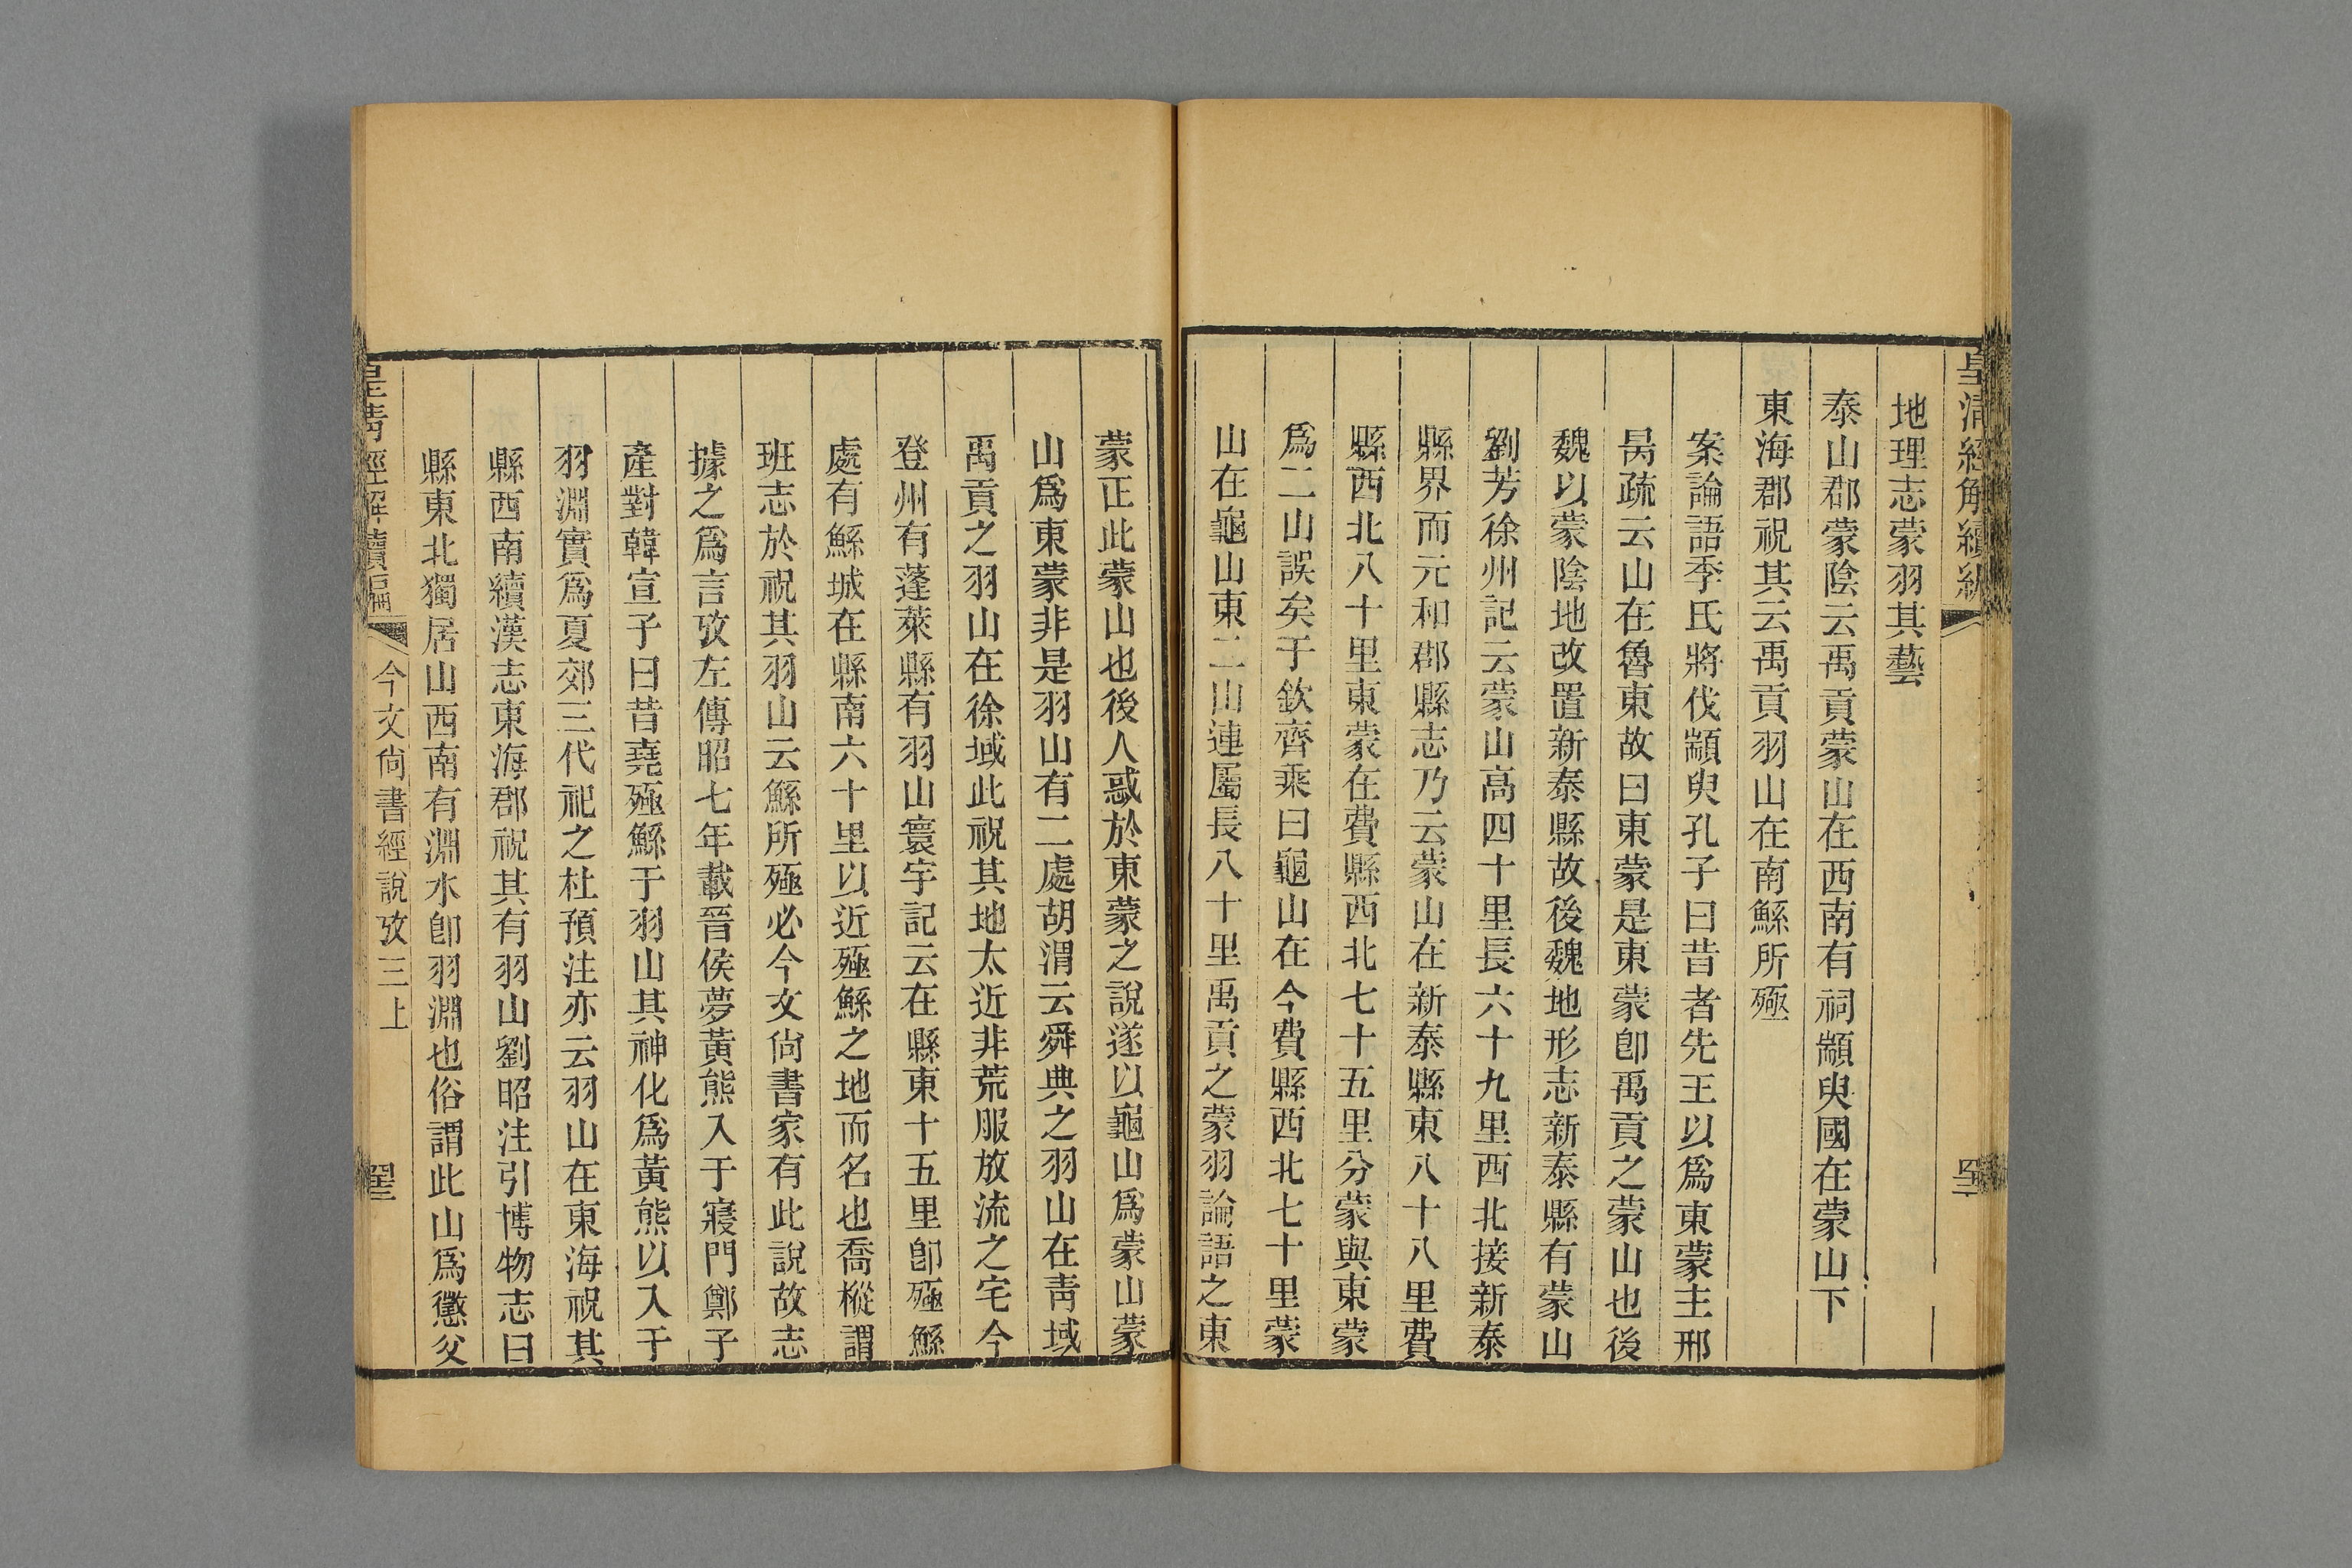 皇清經解續編
地理志蒙羽其藝
泰山郡蒙陰云禹貢蒙山在西南有祠顓臾國在蒙山下
東海郡祝其云禹貢羽山在南鯀所殛
案論語季氏將伐顓臾孔子曰昔者先王以爲東蒙主邢
昺疏云山在魯東故曰東蒙是東蒙卽禹貢之蒙山也後
魏以蒙陰地改置新泰縣故後魏地形志新泰縣有蒙山
劉芳徐州記云蒙山高四十里長六十九里西北接新泰
縣界而元和郡縣志乃云蒙山在新泰縣東八十八里費
縣西北八十里東蒙在費縣西北七十五里分蒙與東蒙
爲二山誤矣于欽齊乘曰龜山在今費縣西北七十里蒙
山在龜山東二山連屬長八十里禹貢之蒙羽論語之東
蒙正此蒙山也後人惑於東蒙之說遂以龜山爲蒙山蒙
山爲東蒙非是羽山有二處胡渭云舜典之羽山在青域
禹貢之羽山在徐域此祝其地太近非荒服放流之宅今
登州有蓬萊縣有羽山寰宇記云在縣東十五里卽殛鯀
處有鯀城在縣南六十里以近殛鯀之地而名也喬樅謂
班志於祝其羽山云鯀所殛必今文尙書家有此說故志
據之爲言攷左傳昭七年載晉侯夢黃熊入于寢門鄭子
產對韓宣子曰昔堯殛鯀于羽山其神化爲黃熊以入于
羽淵實爲夏郊三代祀之杜預注亦云羽山在東海祝其
縣西南續漢志東海郡祝其有羽山劉昭注引博物志曰
縣東北獨居山西南有淵水卽羽淵也俗謂此山爲懲父
皇清經解續編 今文尙書經說攷三上